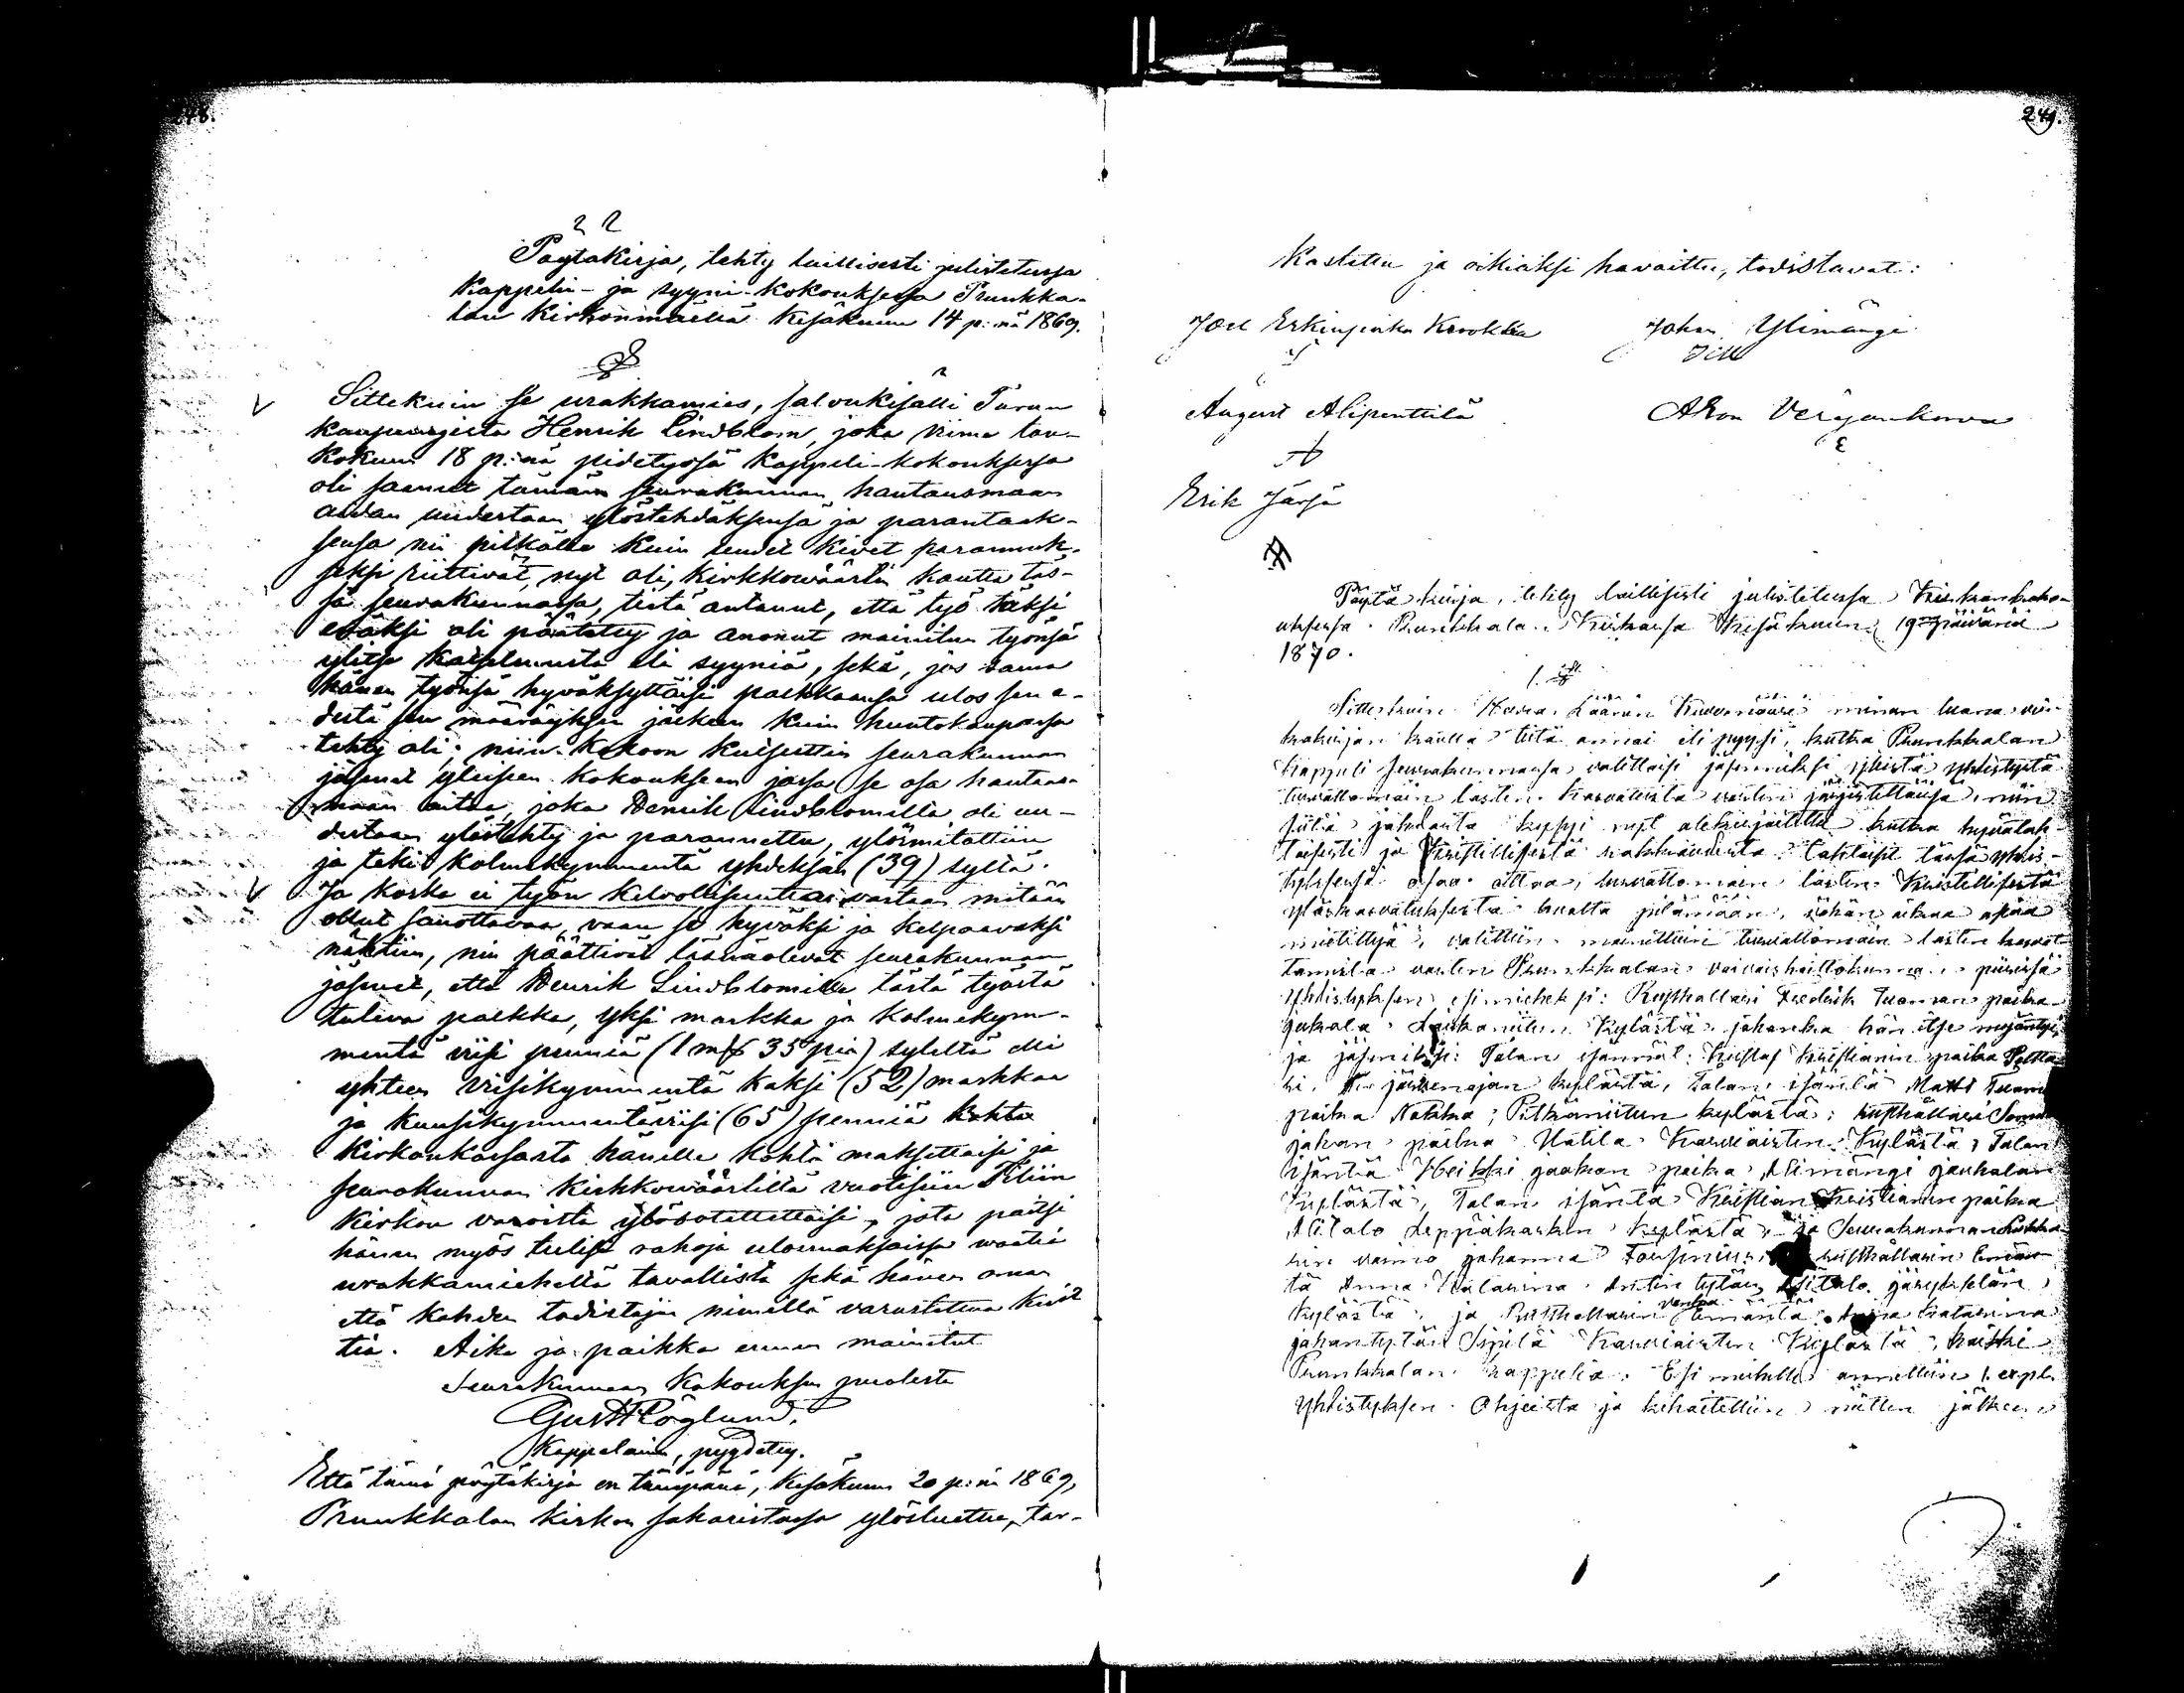 248.
Pöytäkirja, tehty laillisesti julistetussa
Kappeli- ja syyni-kokouksessa Prunkka-
lan Kirkonmäellä Kesäkuun 14 p:nä 1869.
§
Sittekuin se urakkamies, salvukisälli Turun
kaupungista Henrik Lindblom, joka viime tou-
kokuun 18 p:nä pidetyssä kappeli-kokouksessa
oli saanut tämän seurakunnan hautausmaan
aidan uudestaan ylöstehdäksensä ja parantaak-
sensa nii pitkälle kuin uudet kivet parannuk-
seksi riittivät, nyt oli, kirkkoväärtin kautta täs-
sä seurakunnassa, tietä antanut, että työ täksi
eräksi oli päätetty ja anonut mainitun työnsä
ylitse katselmusta eli syyniä, sekä, jos sama
hänen työnsä hyväksyttäisi palkkaansa ulos sen e-
destä sen määräyksen jälkeen kuin huutokaupassa
tehty oli; niin kokoon kutsuttiin seurakunnan
jäsenet yleiseen kokoukseen jossa se osa hautaus-
maan aitaa, joka Henrik Lindblomilla oli uu-
destaan ylöstehty ja parannettu, ylösmitattiin
ja teki kolmekymmentä yhdeksän (39) syltä.
Ja koska ei työn kelvollisuutta vastaan mitään
ollut sanottavaa, vaan se hyväksi ja kelpaavaksi
nähtiin, nin päättivät läsnäolevat seurakunnan
jäsenet, että Henrik Lindblomille tästä työstä
tuleva palkka, yksi markka ja kolmekym-
mentä viisi penniä (1 mk 35 piä) syleltä eli
yhteen viisikymmentä kaksi (52) markkaa
ja kuusikymmentäviisi (65) penniä kohta
Kirkonkassasta hänelle kohta maksettaisi ja
seurakunnan kirkkoväärtiltä vuotisiin Tiliin
kirkon varoista ylösotettettaisi, jota paitsi
hänen myös tulisi rahoja ulosmaksaissa waatia
urakkamieheltä tavallista sekä hänen oman
että kahden todistajan nimellä varustettua kvit
tiä. Aika ja paikka ennen mainitut
Seurakunnan Kokouksen puolesta
Gust Höglund.
Kappelainen, pyydetty.
Että tämä pöytäkirja on tänäpänä, Kesäkuun 20 p:nä 1869,
Prunkkalan kirkon sakaristossa ylösluettu, tar-
249.
kastettu ja oikiaksi havaittu, todistavat:
Joel Erkinpoika Krookka Johan Ylimängi
August Alipenttilä
Erik Järjä
Pöytäkirja, tehty laillisesti julistetussa Kirkonkoko-
uksessa Prunkkalan Kirkossa Kesäkuun 19 päivänä
1870.
1. §
Sittekuin Herra Läänin Kuvernööri minun luona vir-
kakirjan kautta tietä annai eli pyysi, kutka Prunkkalan
Kappeli seurakunnassa valittaisi jäseniksi yhistä yhistystä
turvattomain lasten kasvatusta varten järjestettäissä, niin
siitä puhdasta kyssyi nyt allekirjoitettu kutka hyväntah-
toisesti ja Kristillisestä rakkaudesta tahtoisit tässä yhis-
tyksessä osaa ottaa, turvattomain lasten Kristillisestä
yläskasvatuksesta huolta pitämään,
valittiin mainittuin turvattomain lasten kasvat-
tamista varten Prunkkalan vaivaishoitokunnan piirissä
yhdistyksen esimieheksi: Rusthollari Fredrik Tuomaanpoika
kylästä, johonka hän itse myöntyi
ja jäseniksi: Talon isännät: Kustaf Kristianin poika
kylästä, Talon isäntä Matti Tuoma
poika Nokka; Pitkäniitun kylästä; Rusthollari
johan poika Uotila Karviaisten Kylästä, Talon
isäntä Heikki jaakon poika Alimängi
Kylästä, Talon isäntä Kristian Kristianin poika
Alitalo Leppäkosken Kylästä ja Seurakunnan
rin vaimo johanna rusthollarin Emän-
tä Anna Katarina Antin tytär Alitalo
Kylästä, ja Rusthollarin vanha Emäntä Anna Katarina
johantytär Sipilä Karviaisten Kylästä, kaikki
Prunkkalan kappelia. Esi miehelle annettiin 1 expl.
Yhdistyksen Ohjeista ja kehoitettiin niitten jälkeen